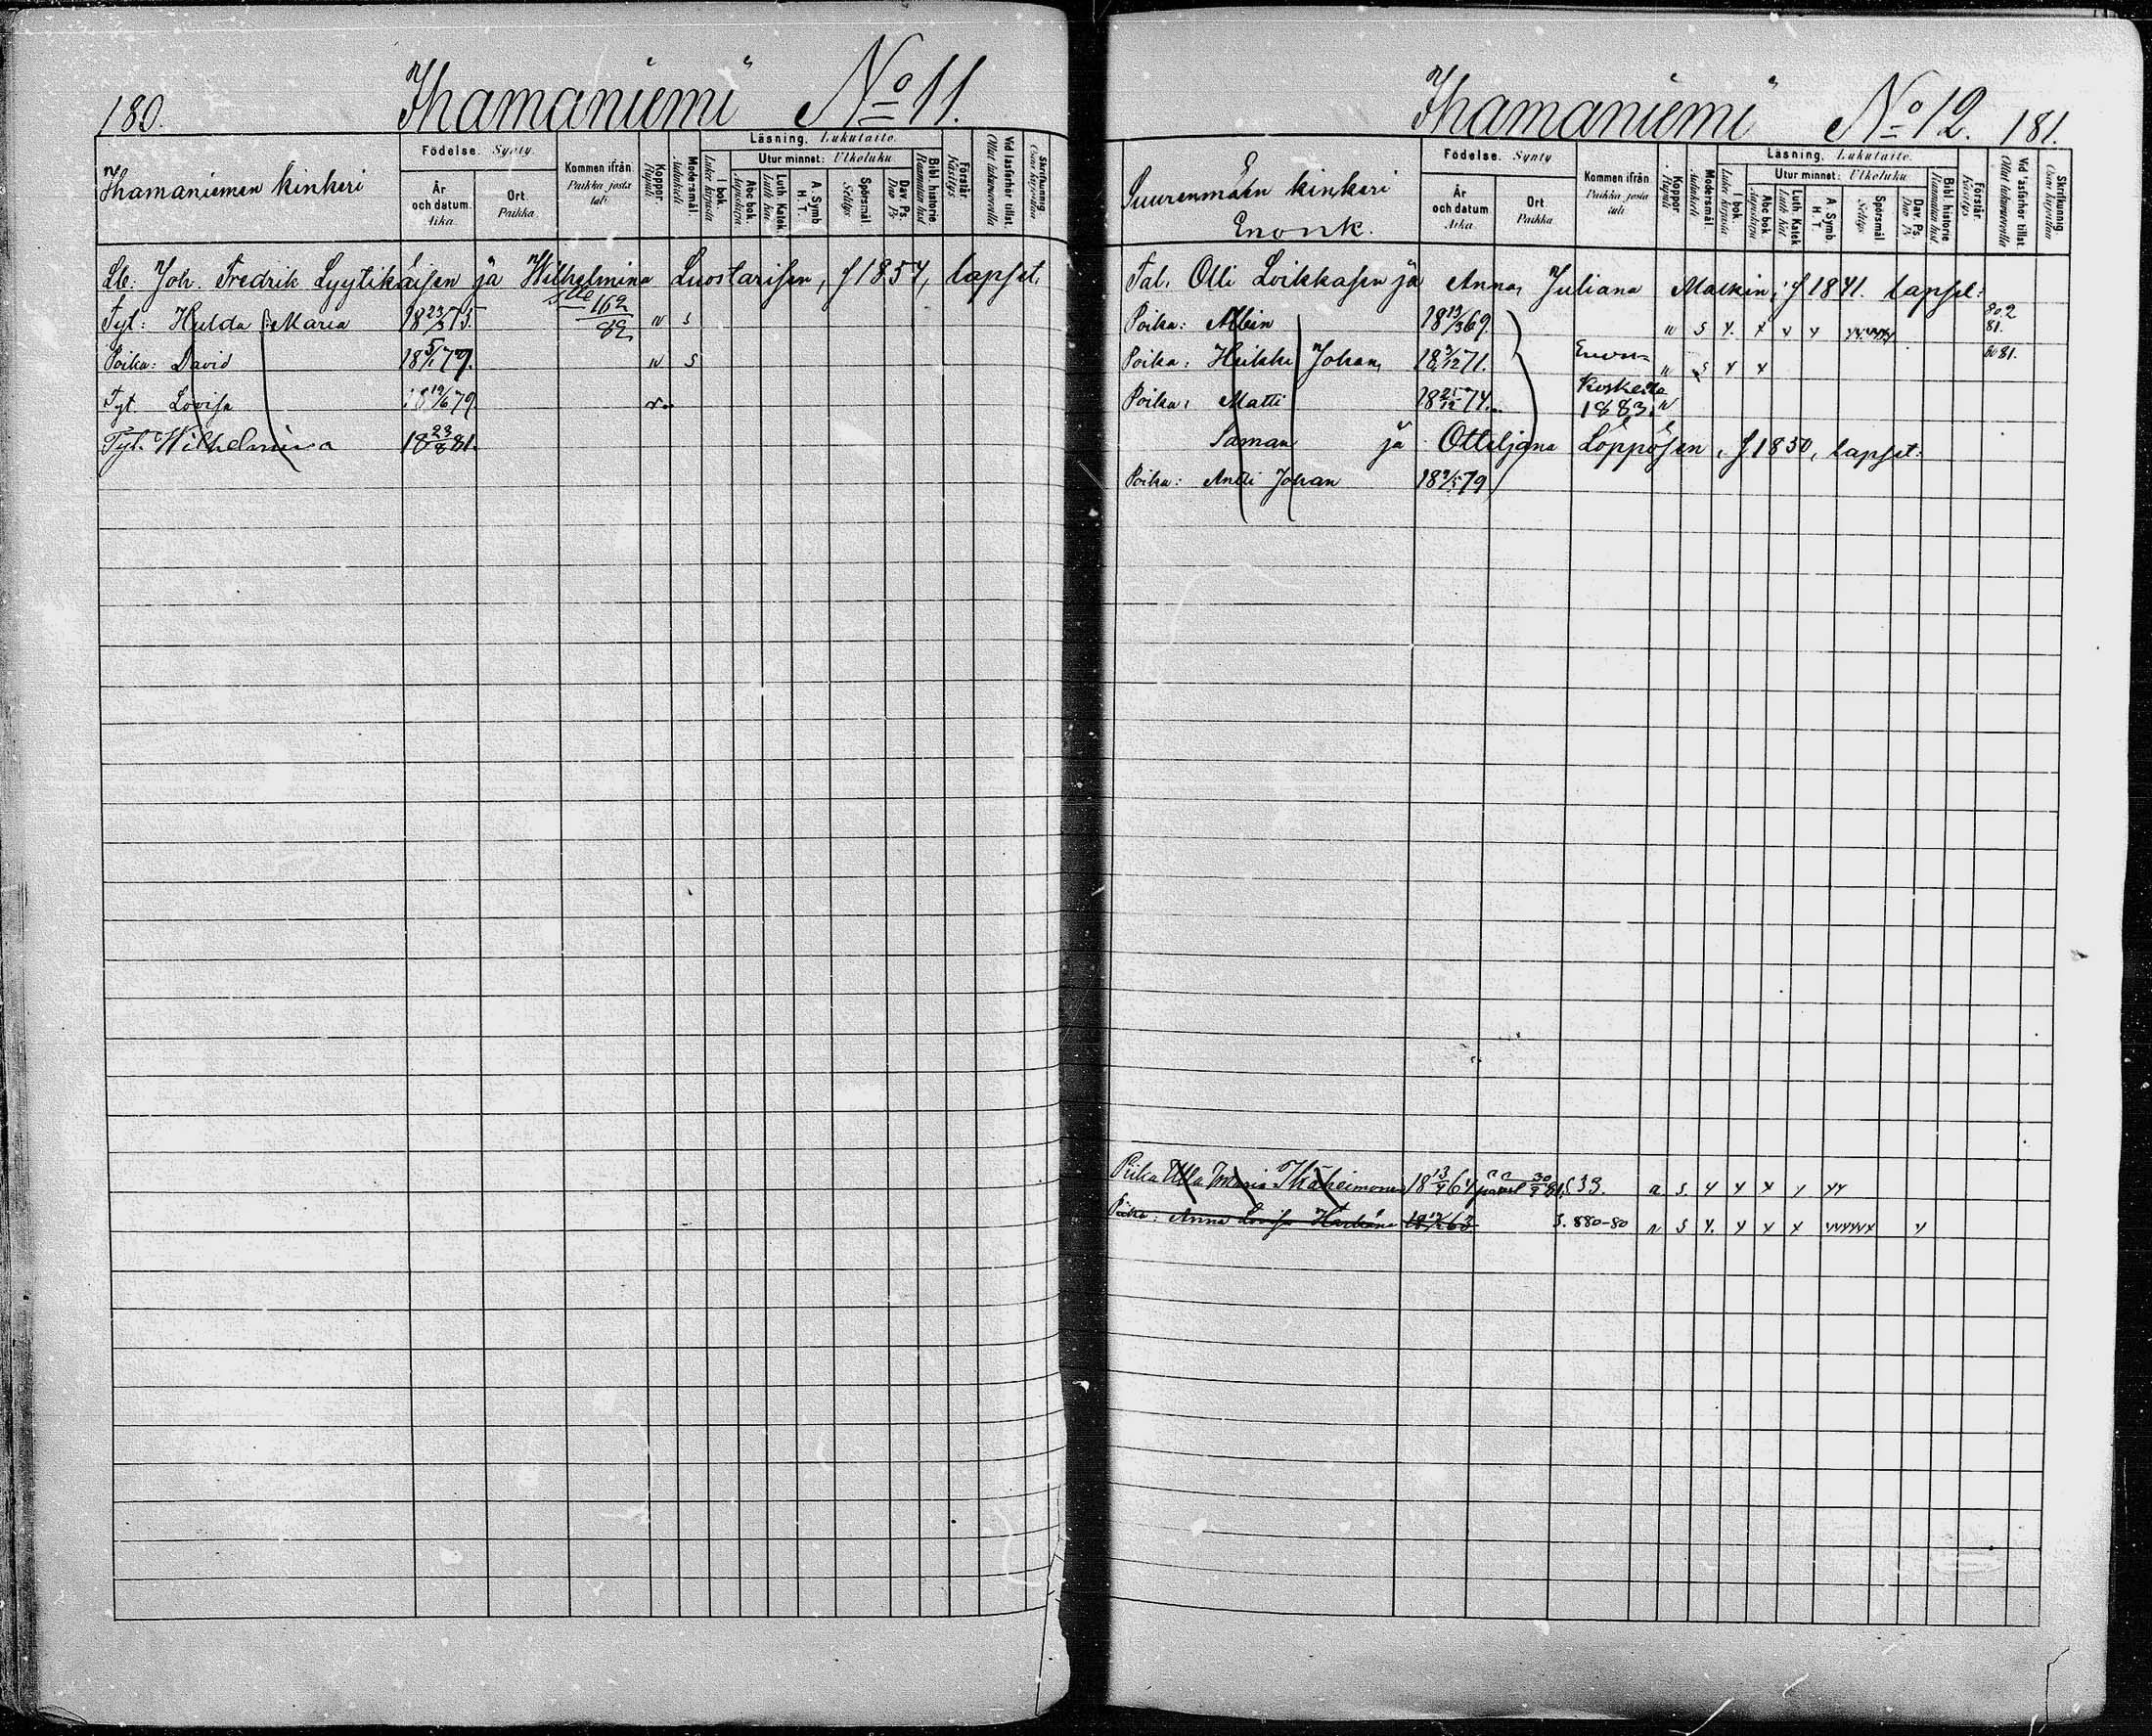 180. Ihamaniemi No 11.
Ihamaniemen kinkeri
Födelse. Synty.
År och datum. Aika.
Ort. Paikka.
Kommen ifrån. Paikka josta tuli
Koppor. Rupuli
Modersmål.
Läsning. Lukutaito.
I bok. Lukee kirjasta
Utur minnet: Ulkoluku
Abc bok. Aapiskirja
Luth. Katek. Luth. Kat.
A. Symb. H. T.
Spörsmål. Selitys
Dav. Ps. Dav. Ps
Bibl. historie. Raamatun hist.
Förstår. Käsitys
Vid läsförhör tillst. Ollut lukuvuorolla
Skrifkunnig. Osaa kirjoittaa
Lb. Joh. Fredrik Lyytikäisen ja Wilhelmina Luostarisen, f 1854, lapset.
Tyt: Hulda Maria 18 23/3 75. 162/82 w s
Poika: David 18 5/1 77. w s
Tyt Lovisa 79
Tyt. Wilhelmina 18 23/8 81.
Ihamaniemi No 12. 181.
Suurenmäen kinkeri
Enonk.
Födelse. Synty
År och datum. Aika
Ort. Paikka
Kommen ifrån. Paikka josta tuli
Koppor. Rupuli
Modersmål.
Läsning. Lukutaito.
I bok. Lukee kirjasta
Utur minnet: Ulkoluku
Abc bok. Aapiskirja
Luth. Katek. Luth. Kat
A. Symb. H. T.
Spörsmål. Selitys
Dav. Ps. Dav. Ps
Bibl. historie. Raamatun hist
Förstår. Käsitys
Vid läsförhör tillst. Ollut lukuvuorolla
Skrifkunnig. Osaa kirjoittaa
Tal. Olli Loikkasen ja Anna Juliana Malkin, f 1841. lapset:
Poika: Albin 18 13/3 69. w s 802 81.
Poika: Heikki Johan 71. s 81.
Poika: Matti 18 21/12 74. 1883. w
Saman ja Ottiljana Loppösen, f 1850, lapset:
Poika: Antti Johan 79
Piika Ulla Maria 18 13/9 64 30/9 81. 539. s
Piika: Anna Lovisa 63 S. 880-80 s